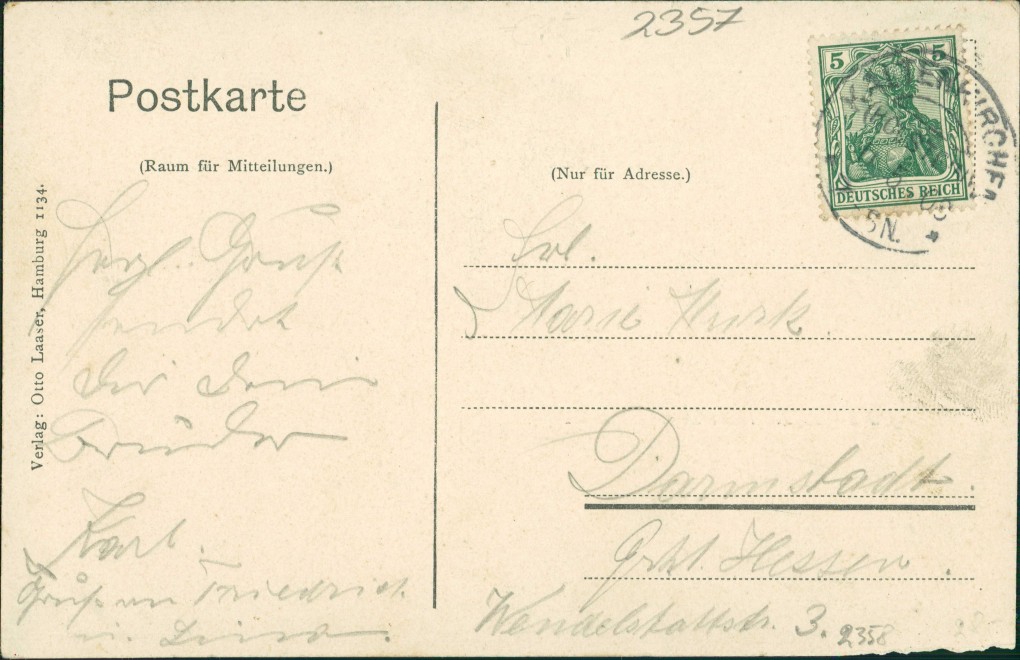 2357
Postkarte
(Raum für Mitteilungen.)
Verlag: Otto Laaser, Hamburg 1134.
Herzl. Gruß
sendet
Dir Dein
Bruder
Karl.
Gruß an Friedrich
u. Lina.
(Nur für Adresse.)
5 5
DEUTSCHES REICH
Frl.
Marie
Darmstadt.
Hessen.
Wendelstattstr. 3.
2358